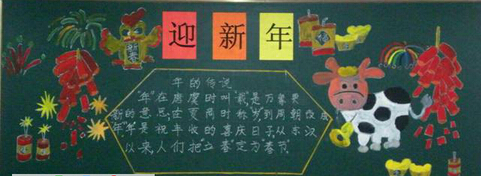 迎新年
年的传说
"年"在唐虞时叫"载"是万象更
新的意思在夏周时称岁到周朝改成
"年"年是祝丰收的喜庆日子从本汉
以来人们把"立春"定为春节